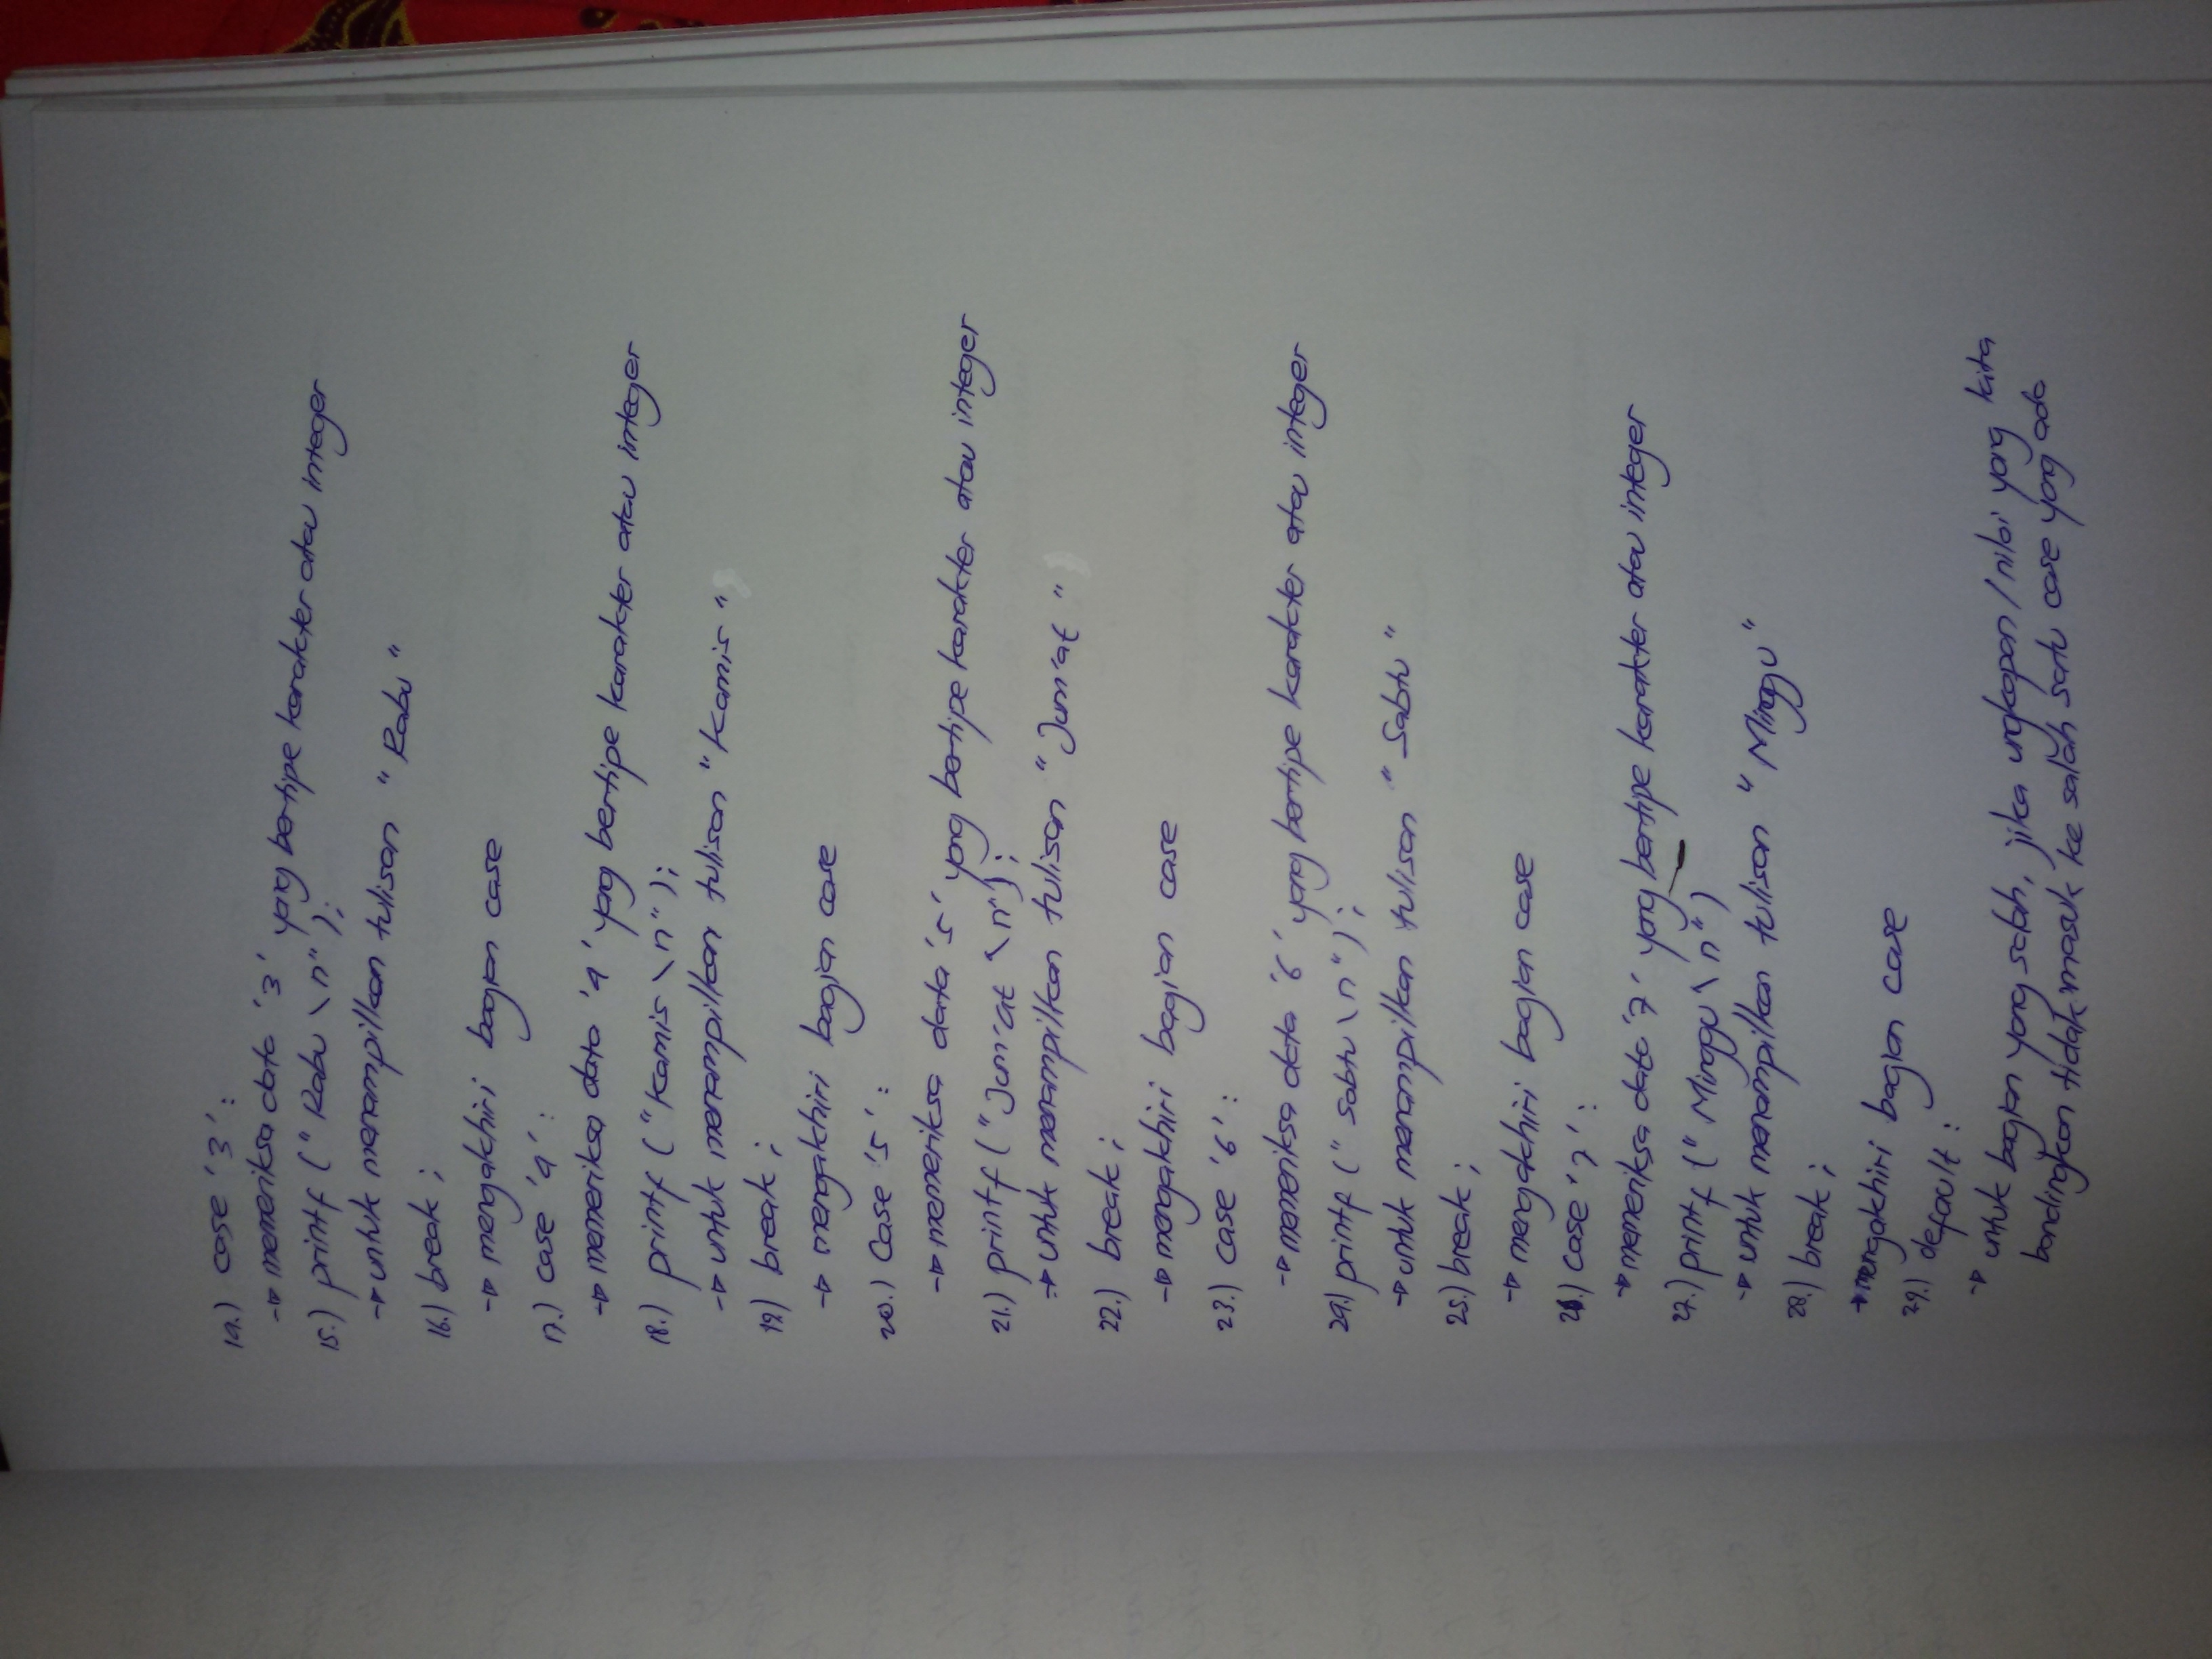 14.) case '3' :
→ memeriksa data '3' yang bertipe karakter atau integer
15.) printf (" Rabu \n" );
→ untuk menampilkan tulisan " Rabu "
16.) break ;
→ mengakhiri bagian case
17.) case '4' :
→ memeriksa data '4' yang bertipe karakter atau integer
18.) printf ("Kamis \n" );
→ untuk menampilkan tulisan "Kamis "
19) break ;
→ mengakhiri bagian case
20.) Case '5' :
→ memeriksa data '5' yang bertipe karakter atau integer
21.) printf ("Jum'at \n");
→ untuk menampilkan tulisan "Jum'at "
22.) break ;
→ mengakhiri bagian case
23.) case '6' :
→ memeriksa data '6' yang bertipe karakter atau integer
24.) printf (" Sabtu \n" ) ;
→ untuk menampilkan tulisan " Sabtu "
25.) break ;
→ mengakhiri bagian case
26.) case '7' :
→ memeriksa data '7' yang bertipe karakter atau integer
27.) printf (" Minggu \n" )
→ untuk menampilkan tulisan " Minggu "
28.) break ;
→ mengakhiri bagian case
29.) default :
→ untuk bagian yang salah, jika ungkapan / nilai yang kita
bandingkan tidak masuk ke salah satu case yang ada